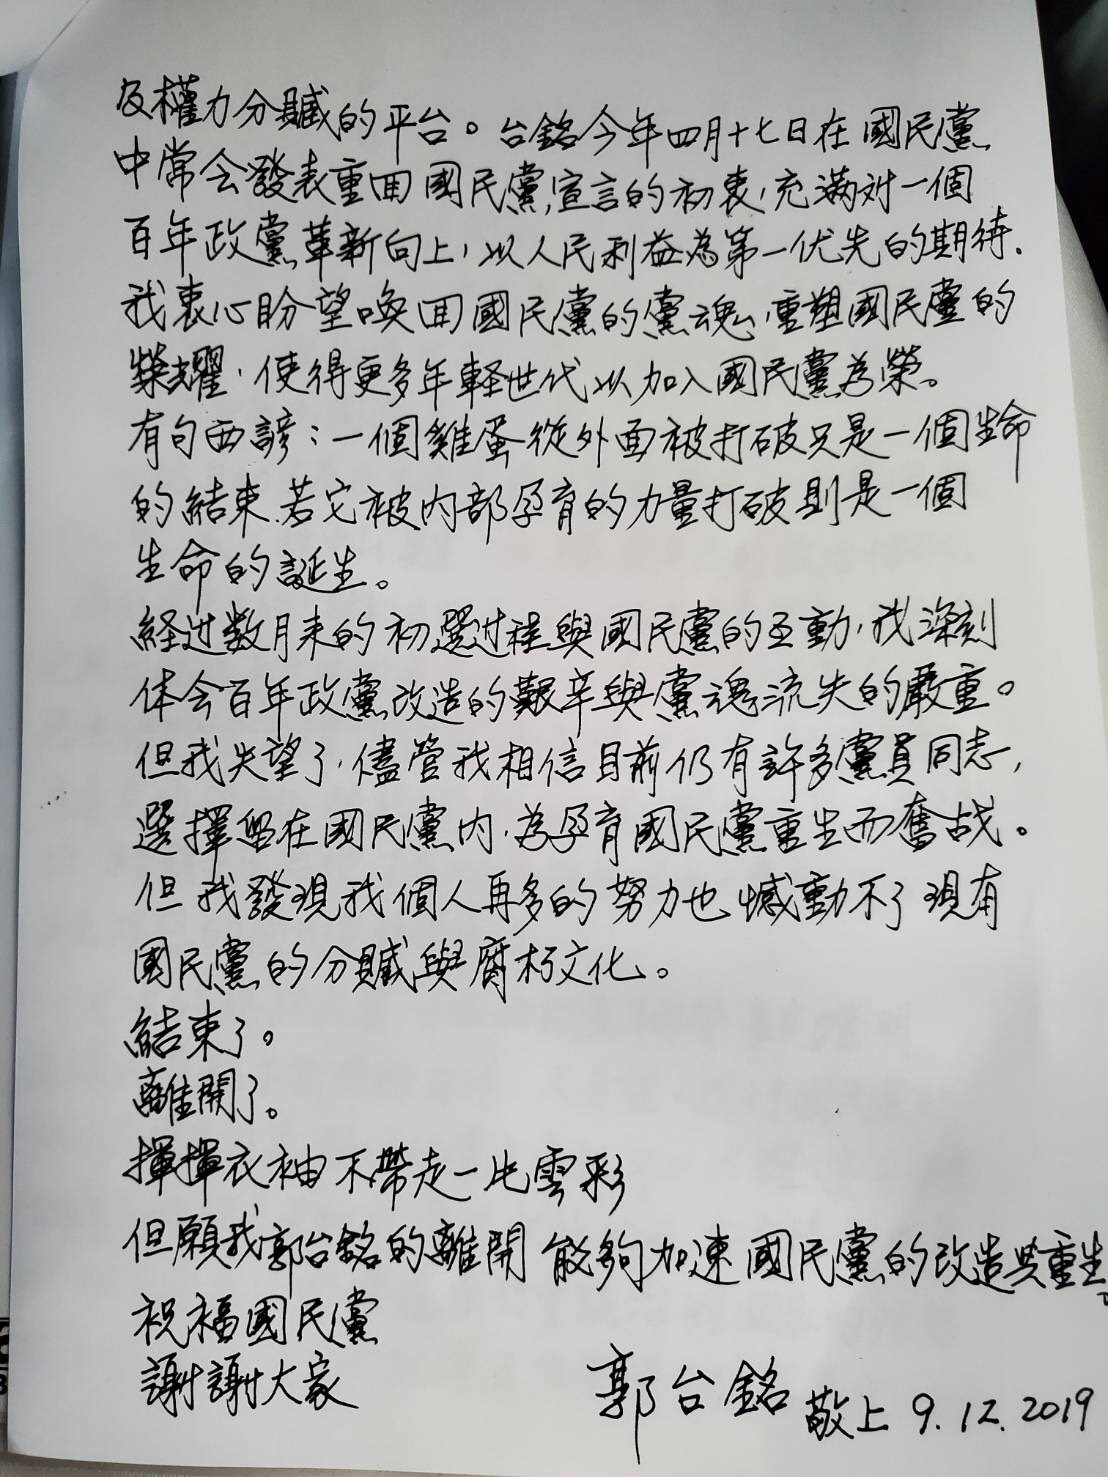 及權力分贓的平台。台銘今年四月十七日在國民黨
中常会發表重回國民黨宣言的初衷,充滿对一個
百年政黨革新向上,以人民利益為第一优先的期待.
我衷心盼望喚回國民黨的黨魂,重塑國民黨的
榮耀,使得更多年軽世代以加入國民黨為榮。
有句西諺:一個雞蛋從外面被打破只是一個生命
的結束.若它被内部孕育的力量打破則是一個
生命的誕生。
経过数月来的初選过程與國民黨的互動,我深刻
体会百年政黨改造的艱辛與黨魂流失的嚴重。
但我失望了,儘管我相信目前仍有許多黨員同志,
選擇留在國民黨内,為孕育國民黨重生而奮战。
但我發現我個人再多的努力也憾動不了現有
國民黨的分贓與腐朽文化。
結束了。
離開了。
揮揮衣袖不帶走一片雲彩
但願我郭台銘的離開 能夠加速國民黨的改造與重生。
祝福國民黨
謝謝大家
郭台銘 敬上 9.12.2019